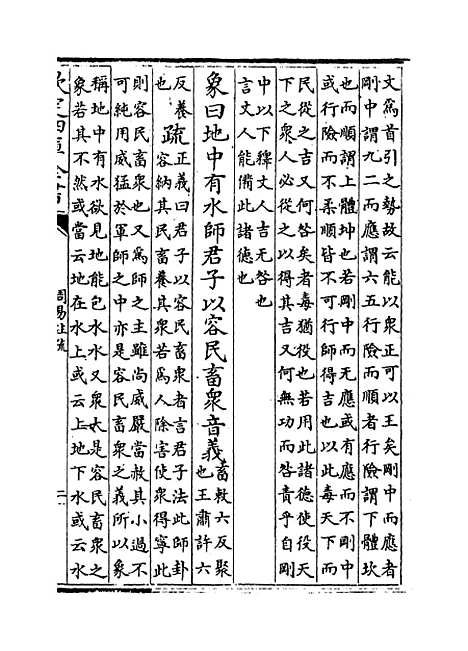 文為首引之勢故云能以衆正可以王矣剛中而應者
剛中謂九二而應謂六五行險而順者行險謂下體坎
也而順謂上體坤也若剛中而无應或有應而不剛中
或行險而不柔順皆不可行師得吉也以此毒天下而
民從之吉又何咎矣者毒猶役也若用此諸德使役天
下之衆人必從之以得其吉又何無功而咎責乎自剛
中以下釋丈人吉无咎也
言丈人能備此諸德也
象曰地中有水師君子以容民畜衆音義畜敕六反聚
也王肅許六
反養
也
疏正義曰君子以容民畜衆者言君子法此師卦
容納其民畜養其衆若為人除害使衆得寧此
則容民畜衆也又為師之主雖尚威嚴當赦其小過不
可純用威猛於軍師之中亦是容民畜衆之義所以象
稱地中有水欲見地能包水水又衆大是容民畜衆之
象若其不然或當云地在水上或云上地下水或云水
周易注疏